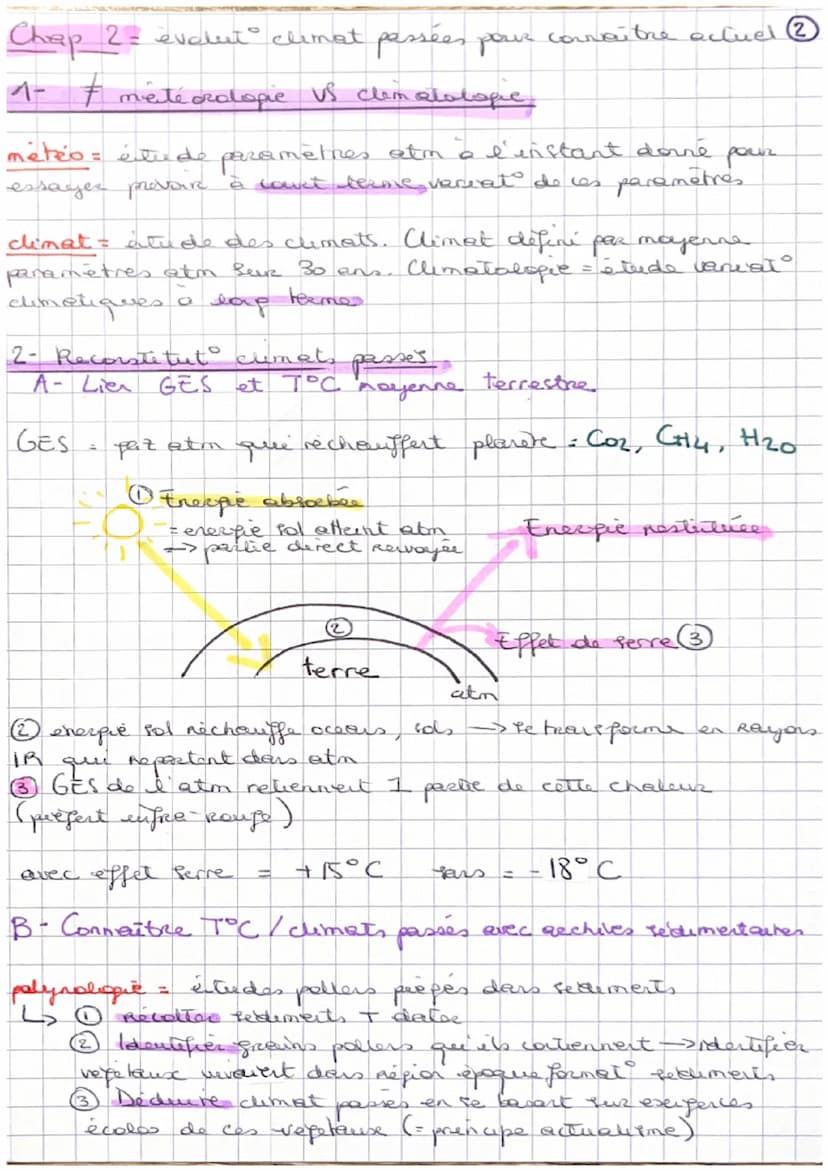 Chap 2 = évolut° climat passées pour connaître actuel ②
1- ≠ météorologie VS climatologie
météo = étude paramètres atm à l'instant donné pour
essayer prévoir à court terme variat° de ces paramètres
climat = étude des climats. Climat défini par moyenne
paramètres atm sur 30 ans. Climatologie = étude variat°
climatiques à long terme
2- Reconstitut° climats passés
A- Lien GES et T°C moyenne terrestre
GES = gaz atm qui réchauffent planète : CO2, CH4, H2O
① Energie absorbée
= energie sol atteint atm
-> partie direct renvoyée
Energie restituée
②
Effet de serre ③
terre
atm
② energie sol réchauffe oceans, sols -> se transforme en rayons
IR qui repartent dans atm
③ GES de l'atm retiennent 1 partie de cette chaleur
(piègent infra-rouge)
avec effet serre = +15°C sans = -18°C
B- Connaître T°C / climats passés avec archives sédimentaires
palynologie = études pollens piégés dans sediments
↳ ① Récolter sediments + dater
② Identifier grains pollens qu'ils contiennent -> identifier
vegetaux vivaient dans région époque format° sediments
③ Déduire climat passés en se basant sur exigences
écolos de ces végétaux (= principe actualisme)